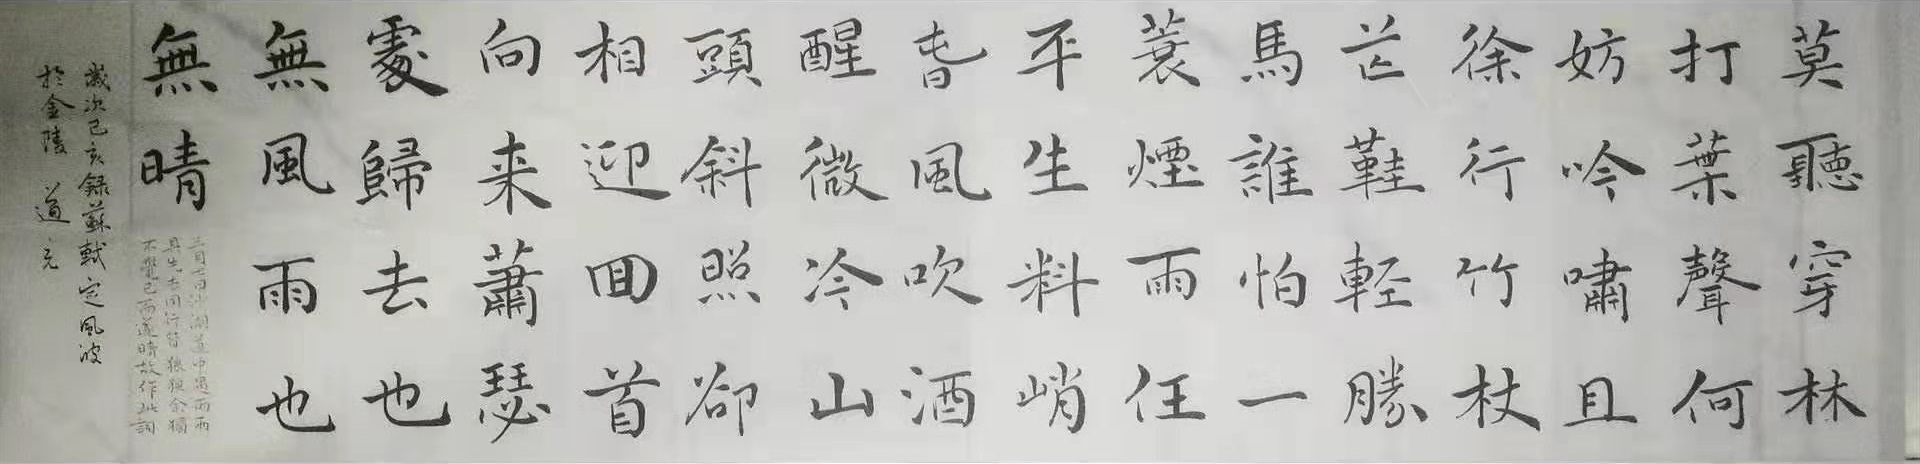 莫聽穿林
打葉聲何
妨吟嘯且
徐行竹杖
芒鞋輕勝
馬誰怕一
蓑煙雨任
平生料峭
春風吹酒
醒微冷山
頭斜照卻
相迎回首
向来蕭瑟
處歸去也
無風雨也
無晴
三月七日沙湖道中遇雨雨
具先去同行皆狼狽余獨
不覺已而遂晴故作此詞
歲次己亥錄蘇軾定風波
於金陵 道